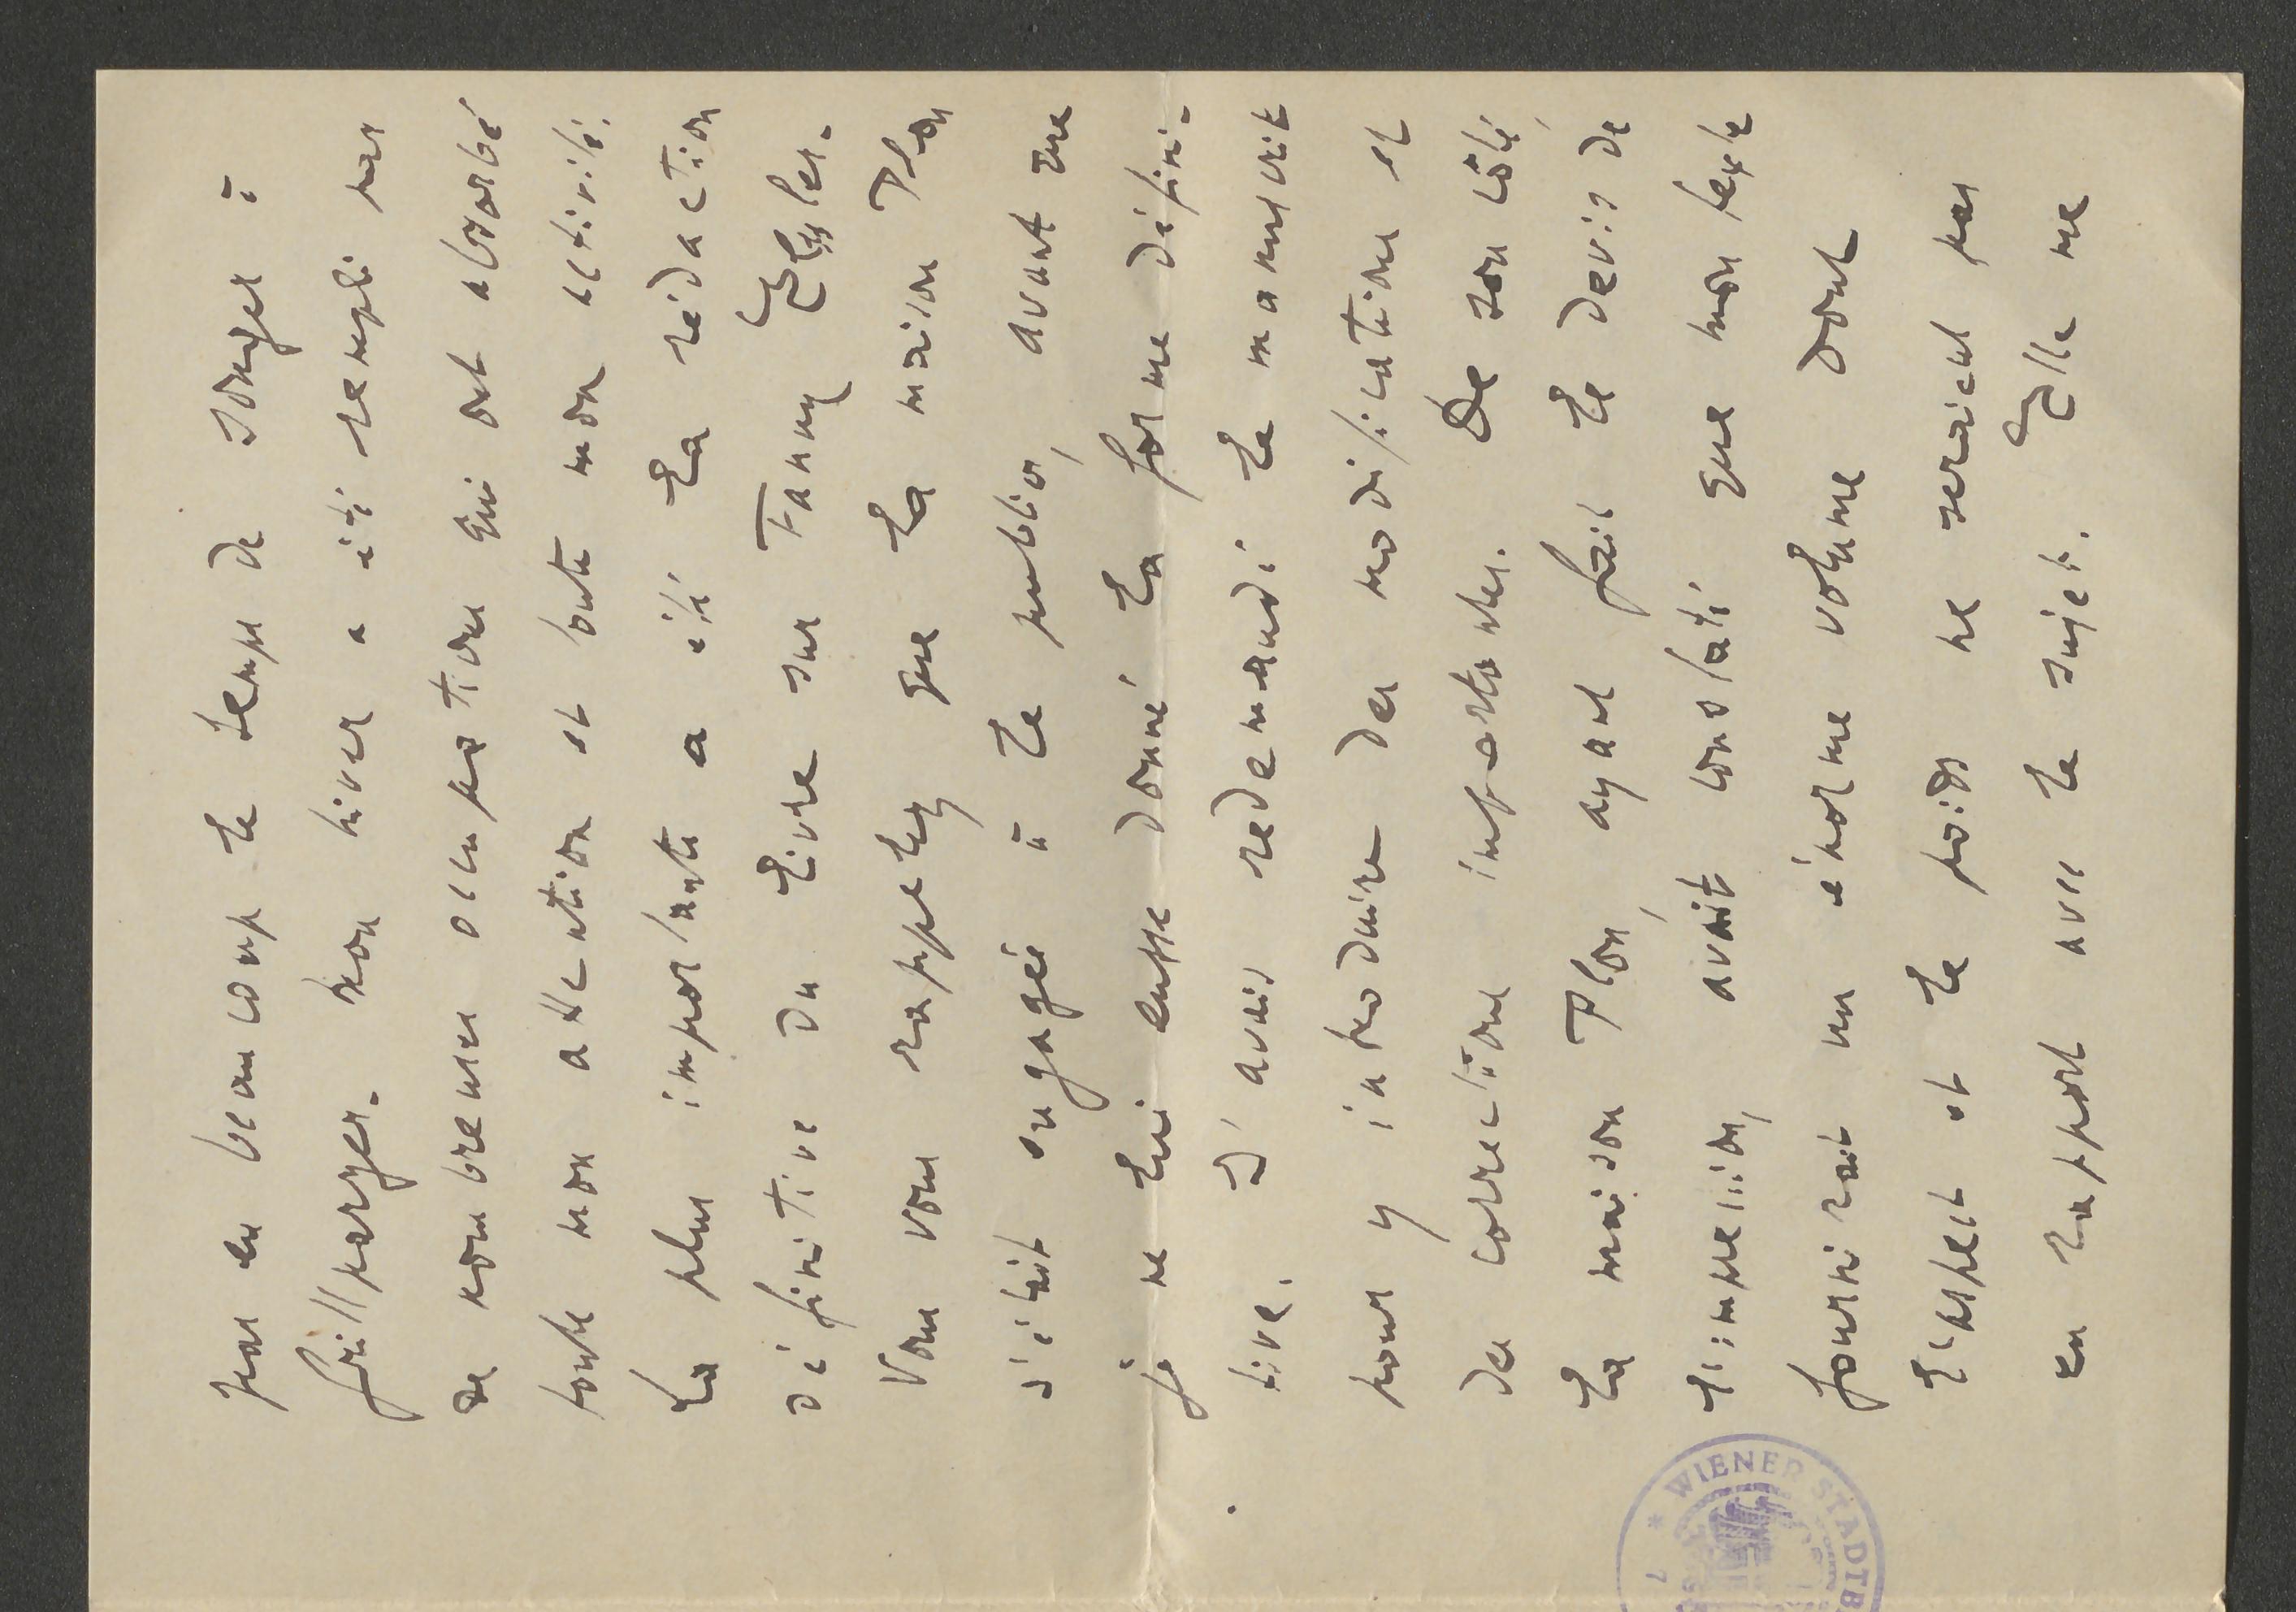 pas eu beaucoup le temps de songer à
Grillparzer. Mon hiver a été rempli par
de nombreuses occupations qui ont absorbé
toute mon attention et toute mon activité.
La plus importante a été la rédaction
définitive du livre sur Fanny Elssler.
Vous vous rappelez que la maison Plon
s'était engagée à le publier, avant que
je ne lui eusse donné la forme défini-
tive. J'avais redemandé le manuscrit
pour y introduire des modifications et
des corrections importantes. De son côté,
la maison Plon, ayant fait le devis de
l'impression, avait constaté que mon texte
fournirait un énorme volume dont
l'aspect et le poids ne seraient pas
en rapport avec le sujet. Elle me
* WIENER STADTB
7